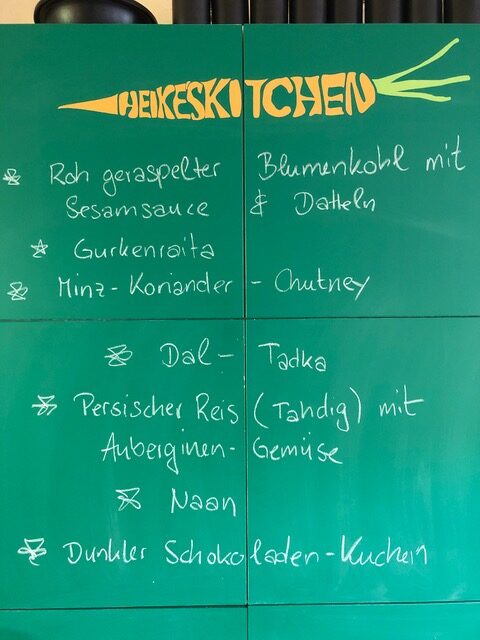 HEIKESKITCHEN
Roh geraspelter Blumenkohl mit
Sesamsauce & Datteln
Gurkenraita
Minz-Koriander - Chutney
Dal - Tadka
Persischer Reis (Tahdig) mit
Auberginen-Gemüse
Naan
Dunkler Schokoladen-Kuchen